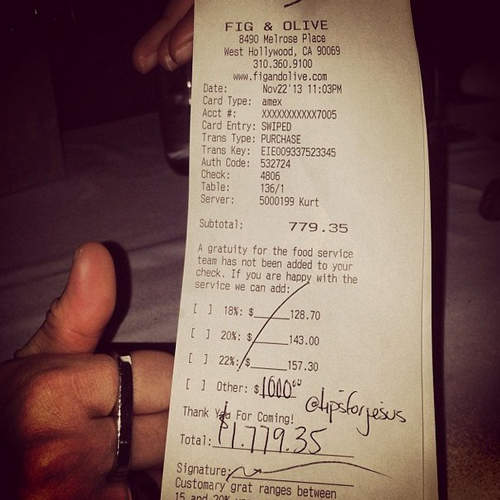 FIG & OLIVE
8490 Melrose Place
West Hollywood, CA 90069
310.360.9100
www.figandolive.com
Date: Nov22'13 11:03PM
Card Type: amex
Acct #: XXXXXXXXXXX7005
Card Entry: SWIPED
Trans Type: PURCHASE
Trans Key: EIE009337523345
Auth Code: 532724
Check: 4806
Table: 136/1
Server: 5000199 Kurt
Subtotal: 779.35
A gratuity for the food service
team has not been added to your
check. If you are happy with the
service we can add:
[ ] 18%: $______128.70
[ ] 20%: $______143.00
[ ] 22%: $______157.30
[ ] Other: $1000.00
@tipsforjesus
Thank You For Coming!
Total: $1,779.35
Signature:
Customary grat ranges between
15 and 20%